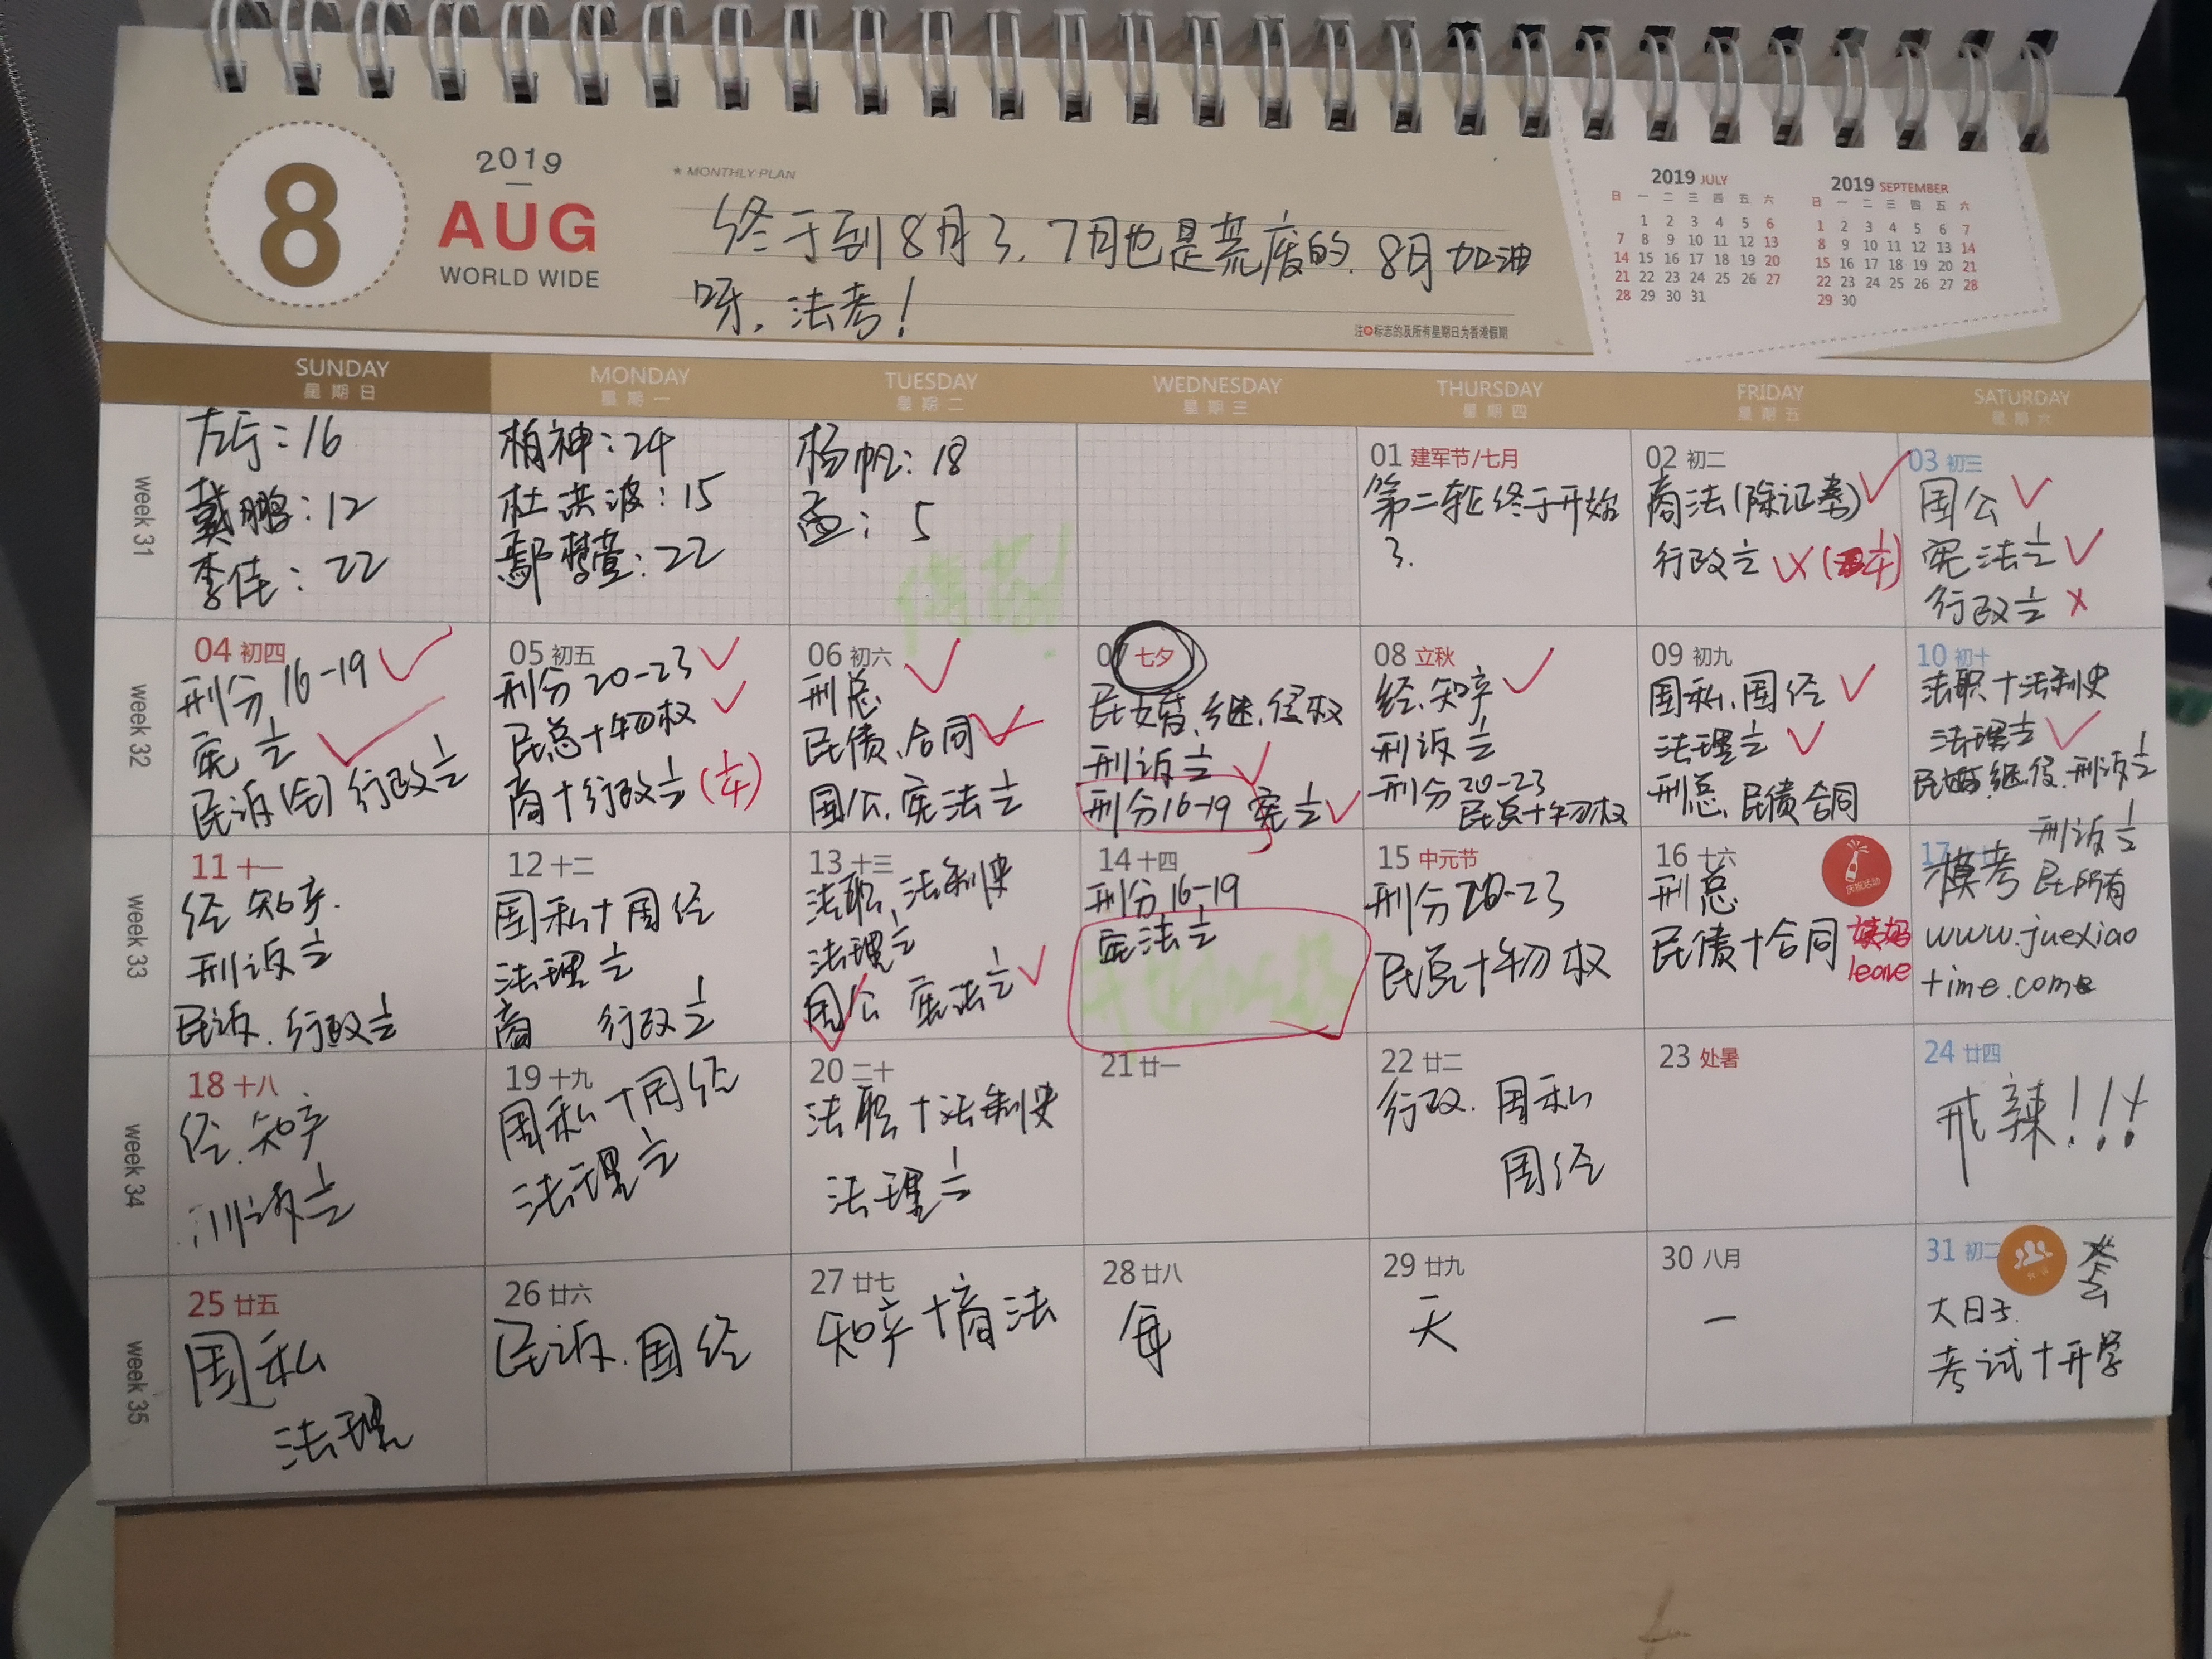 8
2019
AUG
WORLD WIDE
★ MONTHLY PLAN
终于到8月了.7月也是荒废的.8月加油
呀,法考!
注 标志的及所有星期日为香港假期
2019 JULY
日 一 二 三 四 五 六
1 2 3 4 5 6
7 8 9 10 11 12 13
14 15 16 17 18 19 20
21 22 23 24 25 26 27
28 29 30 31
2019 SEPTEMBER
日 一 二 三 四 五 六
1 2 3 4 5 6 7
8 9 10 11 12 13 14
15 16 17 18 19 20 21
22 23 24 25 26 27 28
29 30
SUNDAY MONDAY TUESDAY WEDNESDAY THURSDAY FRIDAY SATURDAY
星期日 星期一 星期二 星期三 星期四 星期五 星期六
week 31
左宁:16
戴鹏:12
李佳:22
柏神:24
杜洪波:15
鄢梦萱:22
杨帆:18
孟:5
01 建军节/七月
第二轮终于开始
了.
02 初二
商法(除证券)
行政½ (¼)
03 初三
国公
宪法½
行政½ ×
week 32
04 初四
刑分16-19
宪½
民诉(全) 行政½
05 初五
刑分20-23
民总+物权
商+行政½(¼)
06 初六
刑总
民债、合同
国公.宪法½
07 七夕
民婚、继.侵权
刑诉½
刑分16-19 宪½
08 立秋
经、知产
刑诉½
刑分20-23
民总+物权
09 初九
国私.国经
法理½
刑总.民债合同
10 初十
法职+法制史
法理½
民婚.继.侵.刑诉½
week 33
11 十一
经 知产.
刑诉½
民诉.行政½
12 十二
国私+国经
法理½
商 行政½
13 十三
法职、法制史
法理½
国公 宪法½
14 十四
刑分16-19
宪法½
15 中元节
刑分20-23
民总+物权
16 十六
刑总
民债+合同
leave
17
刑诉½
模考 民所有
www.juexiao
time.com
week 34
18 十八
经.知产
刑诉½
19 十九
国私+国经
法理½
20 二十
法职+法制史
法理½
21 廿一
22 廿二
行政.国私
国经
23 处暑
24 廿四
戒辣!!!
week 35
25 廿五
国私
法理
26 廿六
民诉.国经
27 廿七
知产+商法
28 廿八
每
29 廿九
天
30 八月
一
31 初二
大日子.
考试+开学